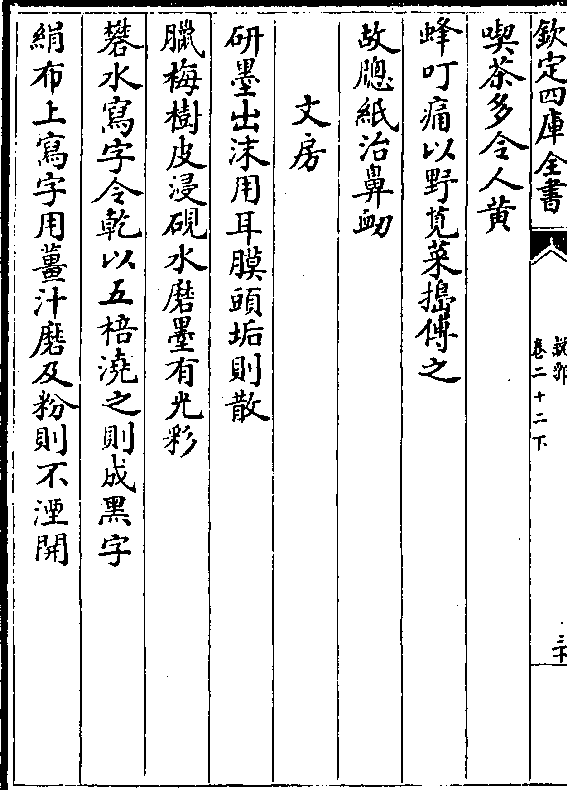 欽定四庫全書
說郛
卷二十二下
喫茶多令人黄
蜂叮痛以野莧菜搗傅之
故牕紙治鼻衂
文房
研墨出沫用耳膜頭垢則散
臘梅樹皮浸硯水磨墨有光彩
礬水寫字令乾以五棓澆之則成黑字
絹布上寫字用薑汁磨及粉則不湮開